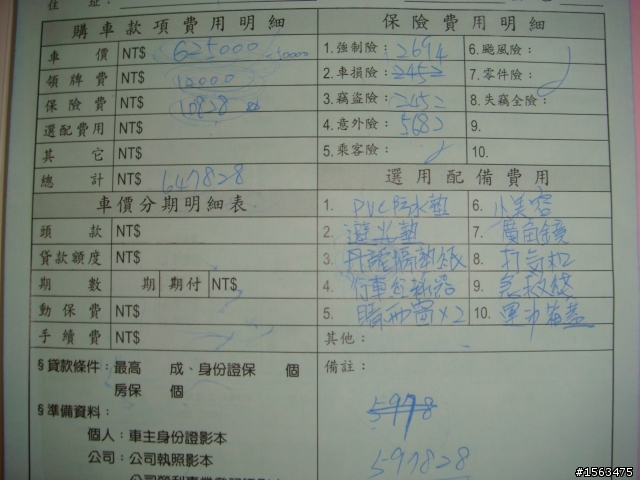 住 址：
購車款項費用明細 保險費用明細
車 價 NT$ 625000 1.強制險：2694 6.颱風險：
領牌費 NT$ 12000 2.車損險：2452 7.零件險：
保險費 NT$ 10828 3.竊盜險：2452 8.失竊全險：
選配費用 NT$ 4.意外險：5682 9.
其 它 NT$ 5.乘客險： 10.
總 計 NT$ 647828 選用配備費用
車價分期明細表 1. PVC防水墊 6. 小美容
頭 款 NT$ 2. 避光墊 7. 廣角鏡
貸款額度 NT$ 3. 隔熱紙 8. 打气机
期 數 期 期付 NT$ 4. 行車 9. 急救线
動保費 NT$ 5. 晴雨窗×2 10.
手續費 NT$ 其他：
§貸款條件：最高 成、身份證保 個 備註：
房保 個
5978
§準備資料：
個人：車主身份證影本
公司：公司執照影本 597828